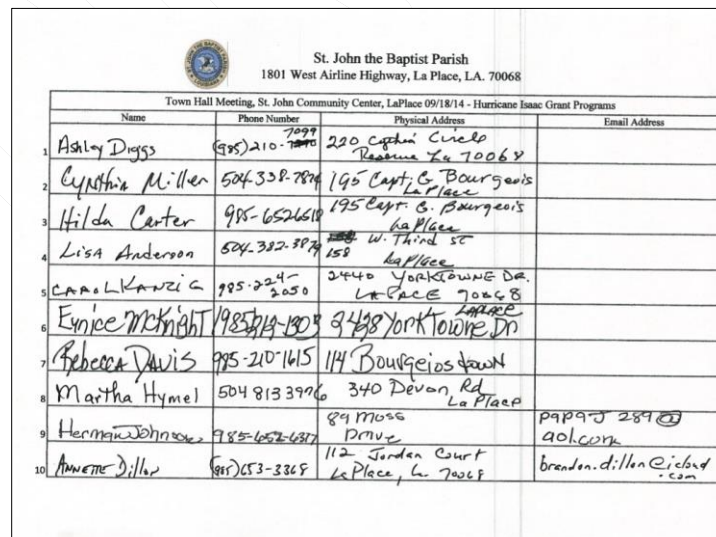 St. John the Baptist Parish
1801 West Airline Highway, La Place, LA. 70068
Town Hall Meeting, St. John Community Center, LaPlace 09/18/14 - Hurricane Isaac Grant Programs
Name Phone Number Physical Address Email Address
7099
1 Ashley Diggs (985)210- 220 Circle
Reserve La 70068
2 Cynthia Miller 504-338-7874 195 Capt. G Bourgeois
LaPlace
3 Hilda Carter 985-6526518 195 Capt. G. Bourgeois
LaPlace
4 Lisa Anderson 504-382-3879 W. Third St
158 LaPlace
5 CAROL KANZIG 985-224- 2440 YORKTOWNE DR.
2050 LAPACE 70068
LAPLACE
6 Eunice McKnight 2428 YorkTowne Dr
7 Rebecca DAVIS 985-210-1615 114 Bourgeios town
8 Martha Hymel 504 813 3976 340 Devon Rd
La Place
9 Herman Johnson 985-652-6377 89 Moss papaJ 289@
Drive aol.com
10 ANNETTE Dillon (985)653-3368 112 Jordan Court brandon.dillon@icloud
LaPlace, La 70068 .com